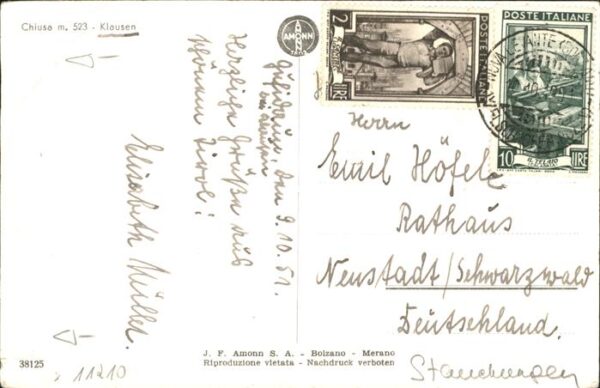 Chiusa m. 523 - Klausen
AMONN
Gufidaun, den 9.10.51.
bei Klausen
Herzliche Grüße aus
schönem Tirol!
Elisabeth Müller.
2
LIRE
POSTE ITALIANE
POSTE ITALIANE
10 LIRE
IL TELAIO
Herrn
Emil Höfele
Rathaus
Neustadt/Schwarzwald
Deutschland.
J. F. Amonn S. A. - Bolzano - Merano
Riproduzione vietata - Nachdruck verboten
38125
11210